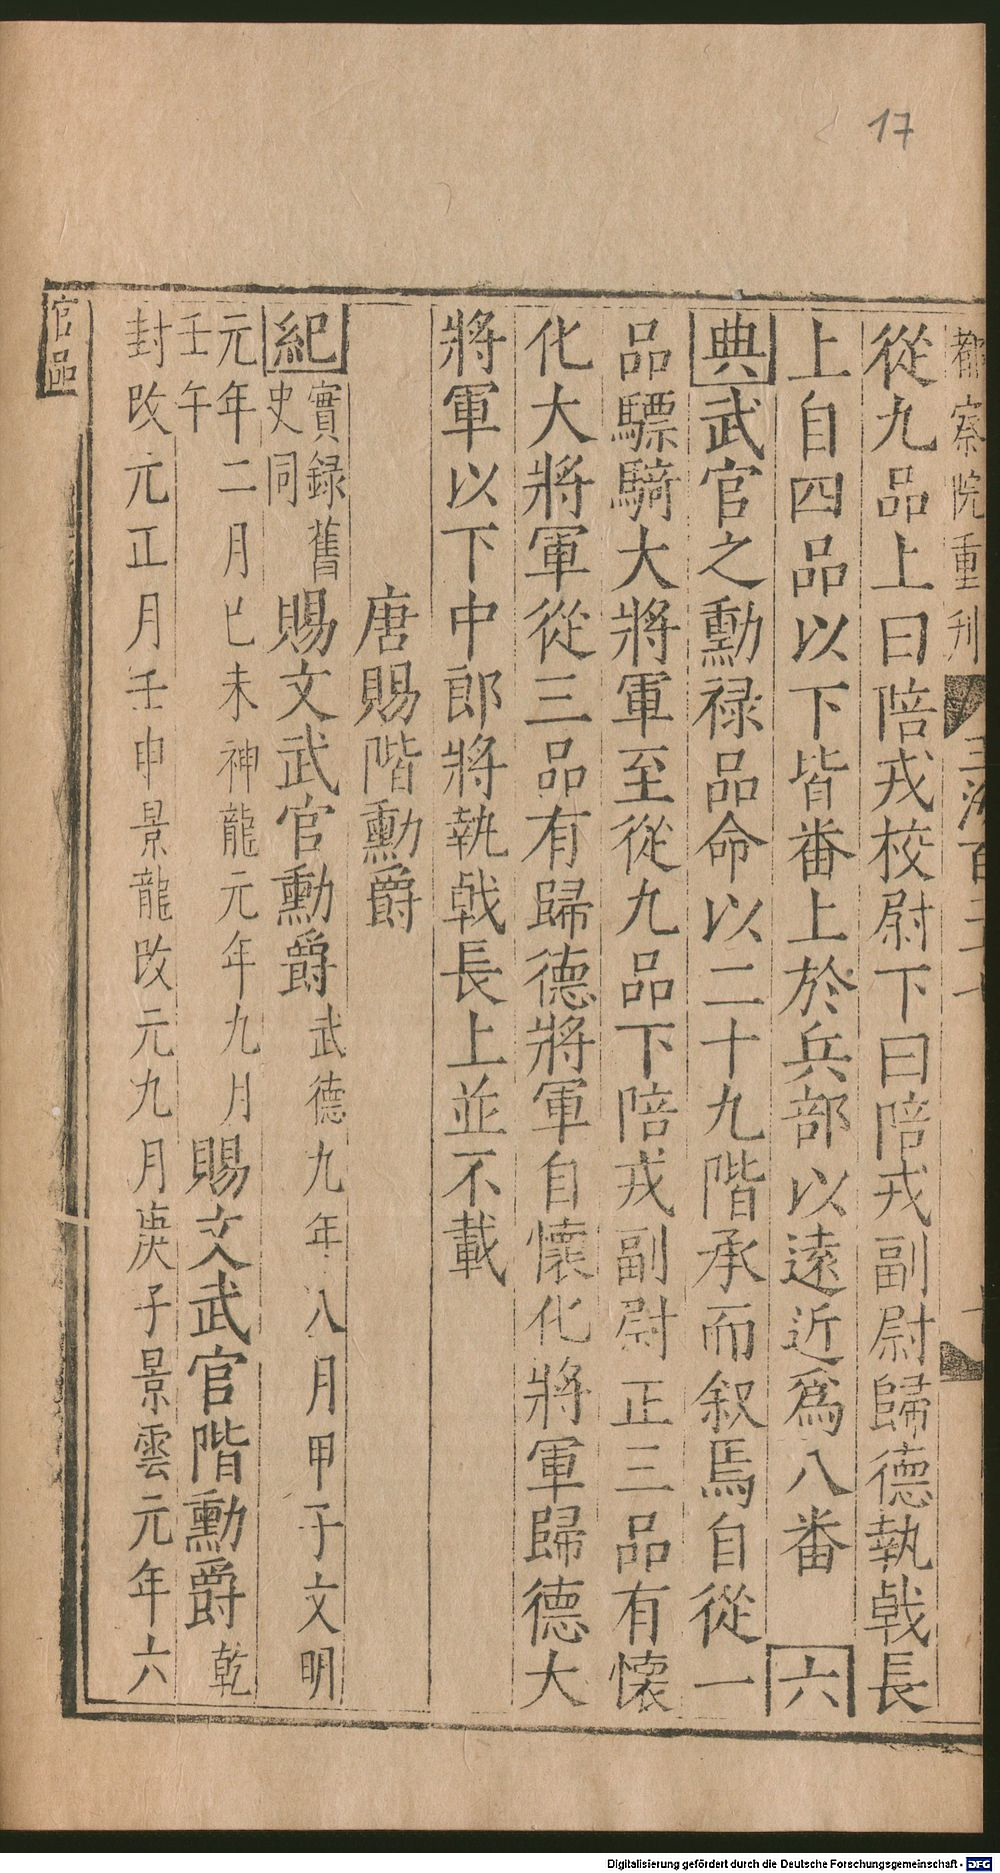 17
都察院重刋
玉海百二十七
從九品上曰陪戎校尉下曰陪戎副尉歸德執戟長
上自四品以下皆番上於兵部以遠近爲八番 六
典武官之勳禄品命以二十九階承而叙焉自從一
品驃騎大將軍至從九品下陪戎副尉正三品有懷
化大將軍從三品有歸德將軍自懷化將軍歸德大
將軍以下中郎將執戟長上並不載
唐賜階勳爵
紀實録舊史同賜文武官勳爵武德九年八月甲子文明
元年二月己未神龍元年九月壬午賜文武官階勳爵乾
封改元正月壬申景龍改元九月庚子景雲元年六
官品
Digitalisierung gefördert durch die Deutsche Forschungsgemeinschaft - DFG